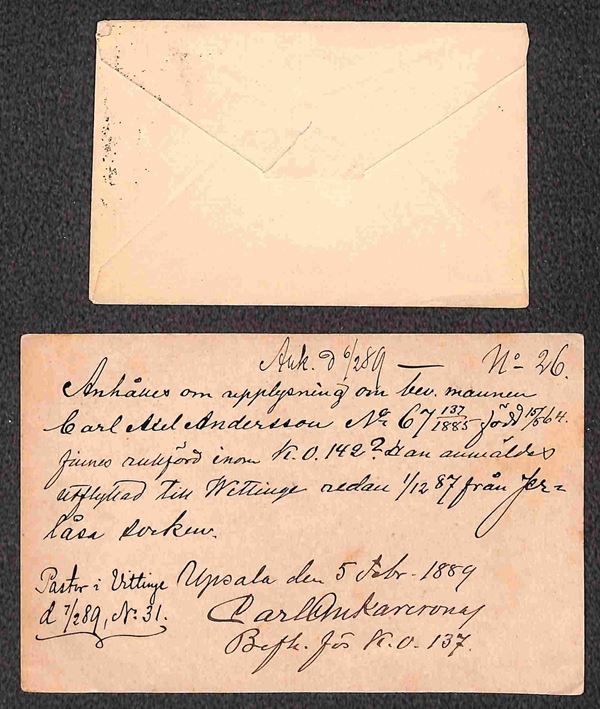 Ank. d 6/2 89 — No 26.
Anhålles om upplysning om bev. mannen
Carl Axel Andersson No 67 137/1885 född 15/5 64.
finnes införd inom K.O. 142? Han anmäldes
utflyttad till Wettinge redan 1/12 87 från Jer=
låsa socken.
Upsala den 5 Febr. 1889
Carl Ankarcrona
Befh. för K.O. 137.
Pastor i Vittinge
d 7/2 89, No 31.